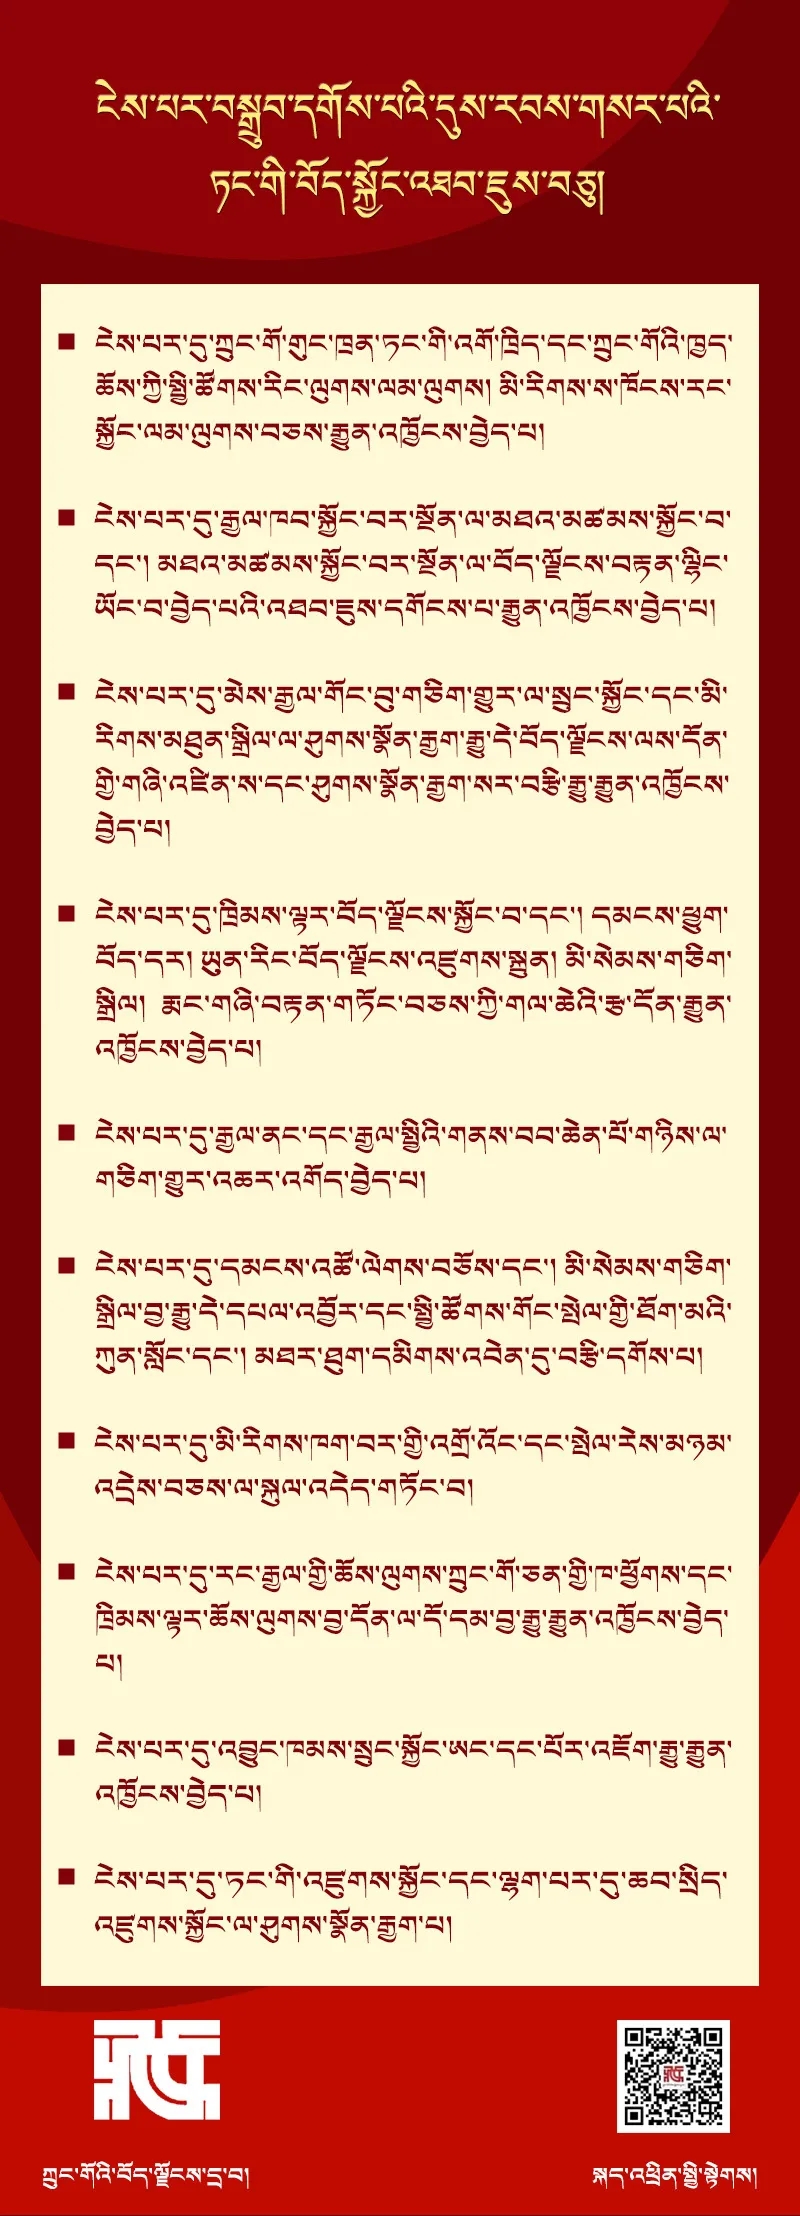 ངེས་པར་བསྒྲུབ་དགོས་པའི་དུས་རབས་གསར་པའི་
ཏང་གི་བོད་སྐྱོང་འཐབ་ཇུས་བཅུ།
ངེས་པར་དུ་ཀྲུང་གོ་གུང་ཁྲན་ཏང་གི་འགོ་ཁྲིད་དང་ཀྲུང་གོའི་ཁྱད་
ཆོས་ཀྱི་སྤྱི་ཚོགས་རིང་ལུགས་ལམ་ལུགས། མི་རིགས་ས་ཁོངས་རང་
སྐྱོང་ལམ་ལུགས་བཅས་རྒྱུན་འཁྱོངས་བྱེད་པ།
ངེས་པར་དུ་རྒྱལ་ཁབ་སྐྱོང་བར་སྔོན་ལ་མཐའ་མཚམས་སྐྱོང་བ་
དང་། མཐའ་མཚམས་སྐྱོང་བར་སྔོན་ལ་བོད་ལྗོངས་བརྟན་ལྷིང་
ཡོང་བ་བྱེད་པའི་འཐབ་ཇུས་དགོངས་པ་རྒྱུན་འཁྱོངས་བྱེད་པ།
ངེས་པར་དུ་མེས་རྒྱལ་གོང་བུ་གཅིག་གྱུར་ལ་སྲུང་སྐྱོང་དང་མི་
རིགས་མཐུན་སྒྲིལ་ལ་ཤུགས་སྣོན་རྒྱག་རྒྱུ་དེ་བོད་ལྗོངས་ལས་དོན་
གྱི་གཞི་འཛིན་ས་དང་ཤུགས་སྣོན་རྒྱག་སར་བརྩི་རྒྱུ་རྒྱུན་འཁྱོངས་
བྱེད་པ།
ངེས་པར་དུ་ཁྲིམས་ལྟར་བོད་ལྗོངས་སྐྱོང་བ་དང་། དམངས་ཕྱུག་
བོད་དར། ཡུན་རིང་བོད་ལྗོངས་འཛུགས་སྐྲུན། མི་སེམས་གཅིག་
སྒྲིལ། རྨང་གཞི་བརྟན་གཏོང་བཅས་ཀྱི་གལ་ཆེའི་རྩ་དོན་རྒྱུན་
འཁྱོངས་བྱེད་པ།
ངེས་པར་དུ་རྒྱལ་ནང་དང་རྒྱལ་སྤྱིའི་གནས་བབ་ཆེན་པོ་གཉིས་ལ་
གཅིག་གྱུར་འཆར་འགོད་བྱེད་པ།
ངེས་པར་དུ་དམངས་འཚོ་ལེགས་བཅོས་དང་། མི་སེམས་གཅིག་
སྒྲིལ་བྱ་རྒྱུ་དེ་དཔལ་འབྱོར་དང་སྤྱི་ཚོགས་གོང་སྤེལ་གྱི་ཐོག་མའི་
ཀུན་སློང་དང་། མཐར་ཐུག་དམིགས་འབེན་དུ་བརྩི་དགོས་པ།
ངེས་པར་དུ་མི་རིགས་ཁག་བར་གྱི་འགྲོ་འོང་དང་སྤེལ་རེས་མཉམ་
འདྲེས་བཅས་ལ་སྐུལ་འདེད་གཏོང་བ།
ངེས་པར་དུ་རང་རྒྱལ་གྱི་ཆོས་ལུགས་ཀྲུང་གོ་ཅན་གྱི་ཁ་ཕྱོགས་དང་
ཁྲིམས་ལྟར་ཆོས་ལུགས་བྱ་དོན་ལ་དོ་དམ་བྱ་རྒྱུ་རྒྱུན་འཁྱོངས་བྱེད་
པ།
ངེས་པར་དུ་འབྱུང་ཁམས་སྲུང་སྐྱོང་ཨང་དང་པོར་འཇོག་རྒྱུ་རྒྱུན་
འཁྱོངས་བྱེད་པ།
ངེས་པར་དུ་ཏང་གི་འཛུགས་སྐྱོང་དང་ལྷག་པར་དུ་ཆབ་སྲིད་
འཛུགས་སྐྱོང་ལ་ཤུགས་སྣོན་རྒྱག་པ།
ཀྲུང་གོའི་བོད་ལྗོངས་དྲ་བ།
སྐད་འཕྲིན་སྤྱི་སྟེགས།